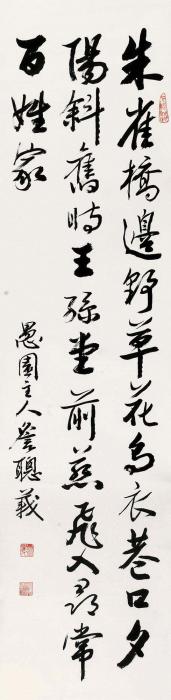 朱雀橋邊野草花烏衣巷口夕
陽斜舊時王孫堂前燕飛入尋常
百姓家
愚園主人詹聰義